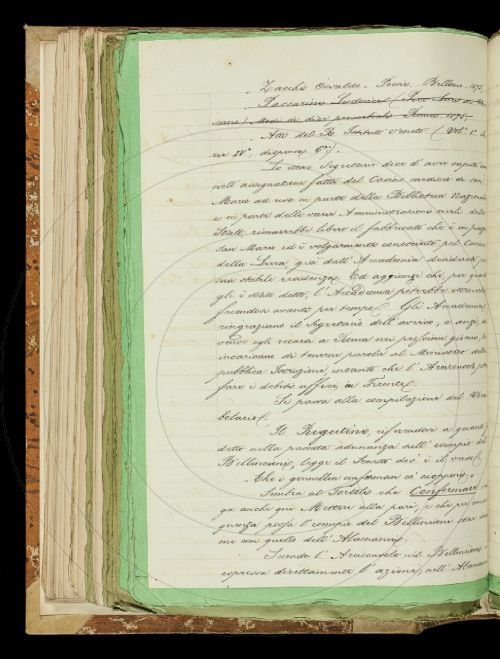 Zacchi Osvaldo - Poesie, Belluno 1875,
Passarini Ludovico
Modi di dire proverbiali - Roma 1875.
Atti del R. Istituto Veneto
dispensa
Lo stesso Segretario dice d'aver saputo
nell'assegnazione fatta del Casino mediceo di San
Marco ad uso in parte della Biblioteca Nazionale
e in parte delle varie Amministrazioni civili dello
Stato, rimarrebbe libero il fabbricato che è in piazza
San Marco ed è volgarmente conosciuto pel Casino
della Livia, già dall'Accademia desiderato per
sua stabile residenza. Ed aggiunge che, per quanto
gli è stato detto, l'Accademia potrebbe ottenerlo
facendosi avanti per tempo. Gli Accademici
ringraziano il Segretario dell'avviso, e anzi
egli recarsi a Roma nei prossimi giorni, lo
incaricano di tenerne parola al Ministro della
pubblica Istruzione, intanto che l'Arciconsolo
fare i debiti uffici in Firenze.
Si passa alla compilazione del Vocabolario.
Il Rigutini, riferendosi a quanto
detto nella passata adunanza sull'esempio del
Bellincioni, legge il Sonetto dov'è il verso
Che i gonnellin conferman
Sembra al Tortoli che Confermare
qui anche qui Mettere alla pari, e che per
guenza possa l'esempio del Bellincioni stare
me con quello dell'Alamanni.
Secondo l'Arciconsolo nel Bellincioni
espressa direttamente l'azione, nell'Alamanni